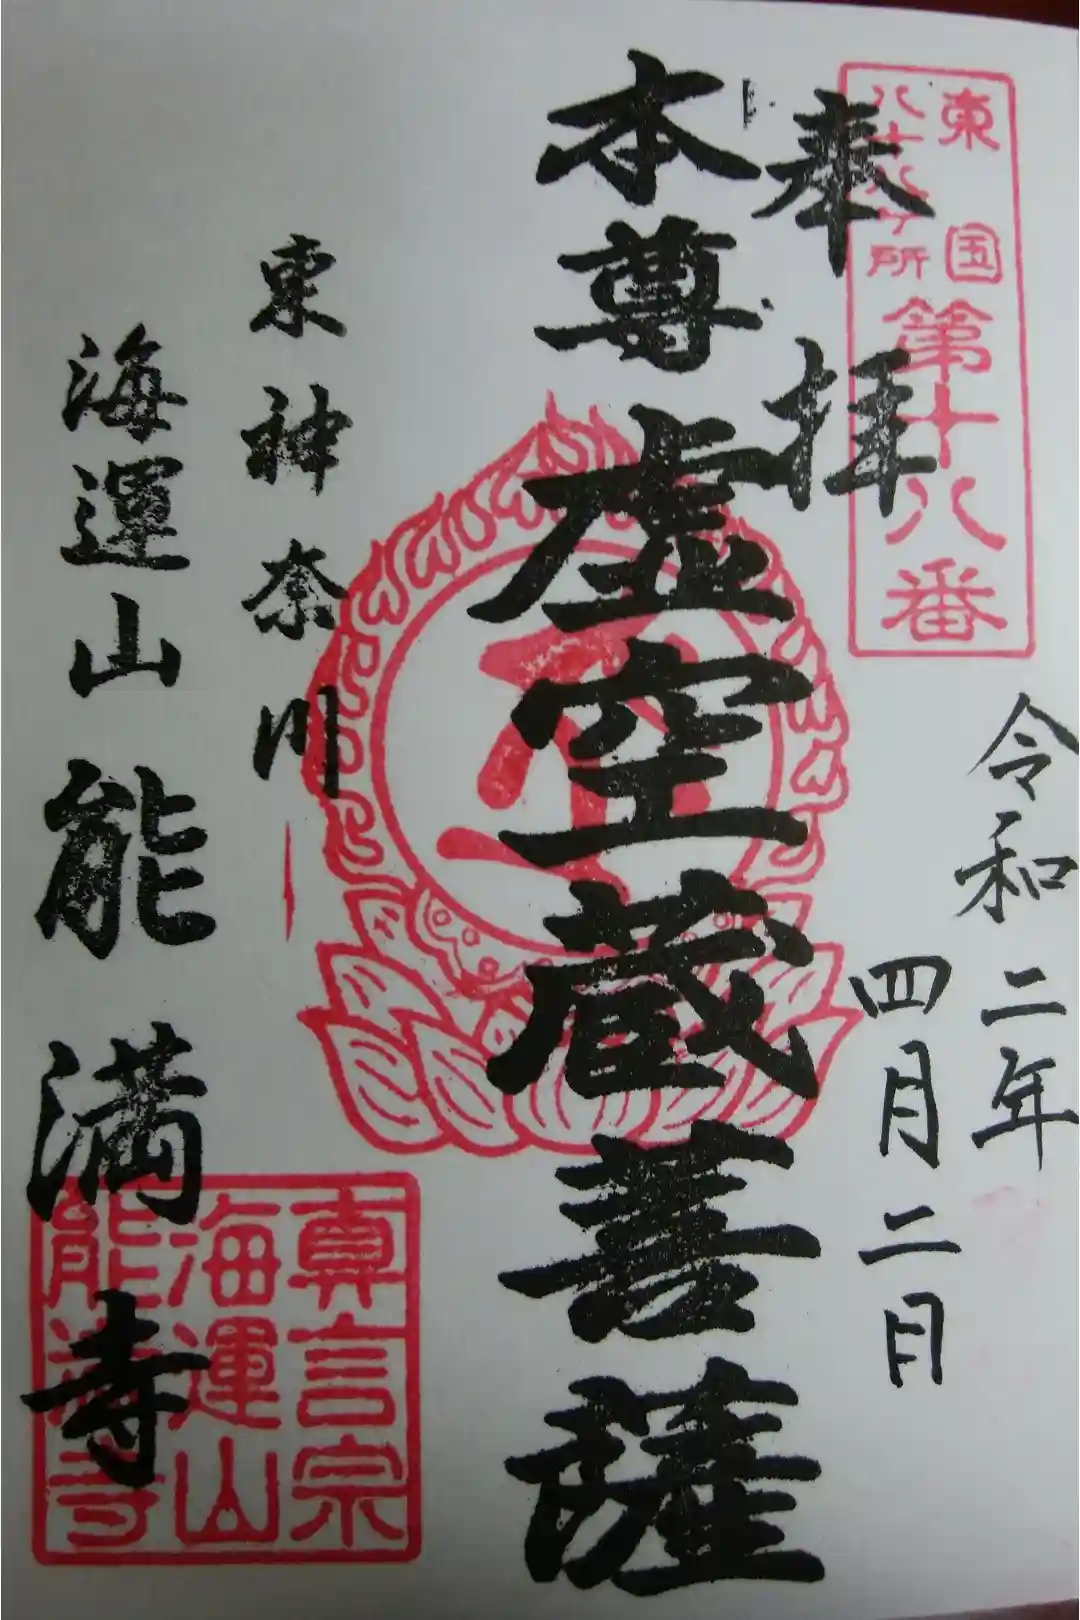 東国
八十八ケ所
第十八番
令和二年
四月二日
奉拝
本尊虚空蔵菩薩
東神奈川
海運山能満寺
真言宗
海運山
能満寺